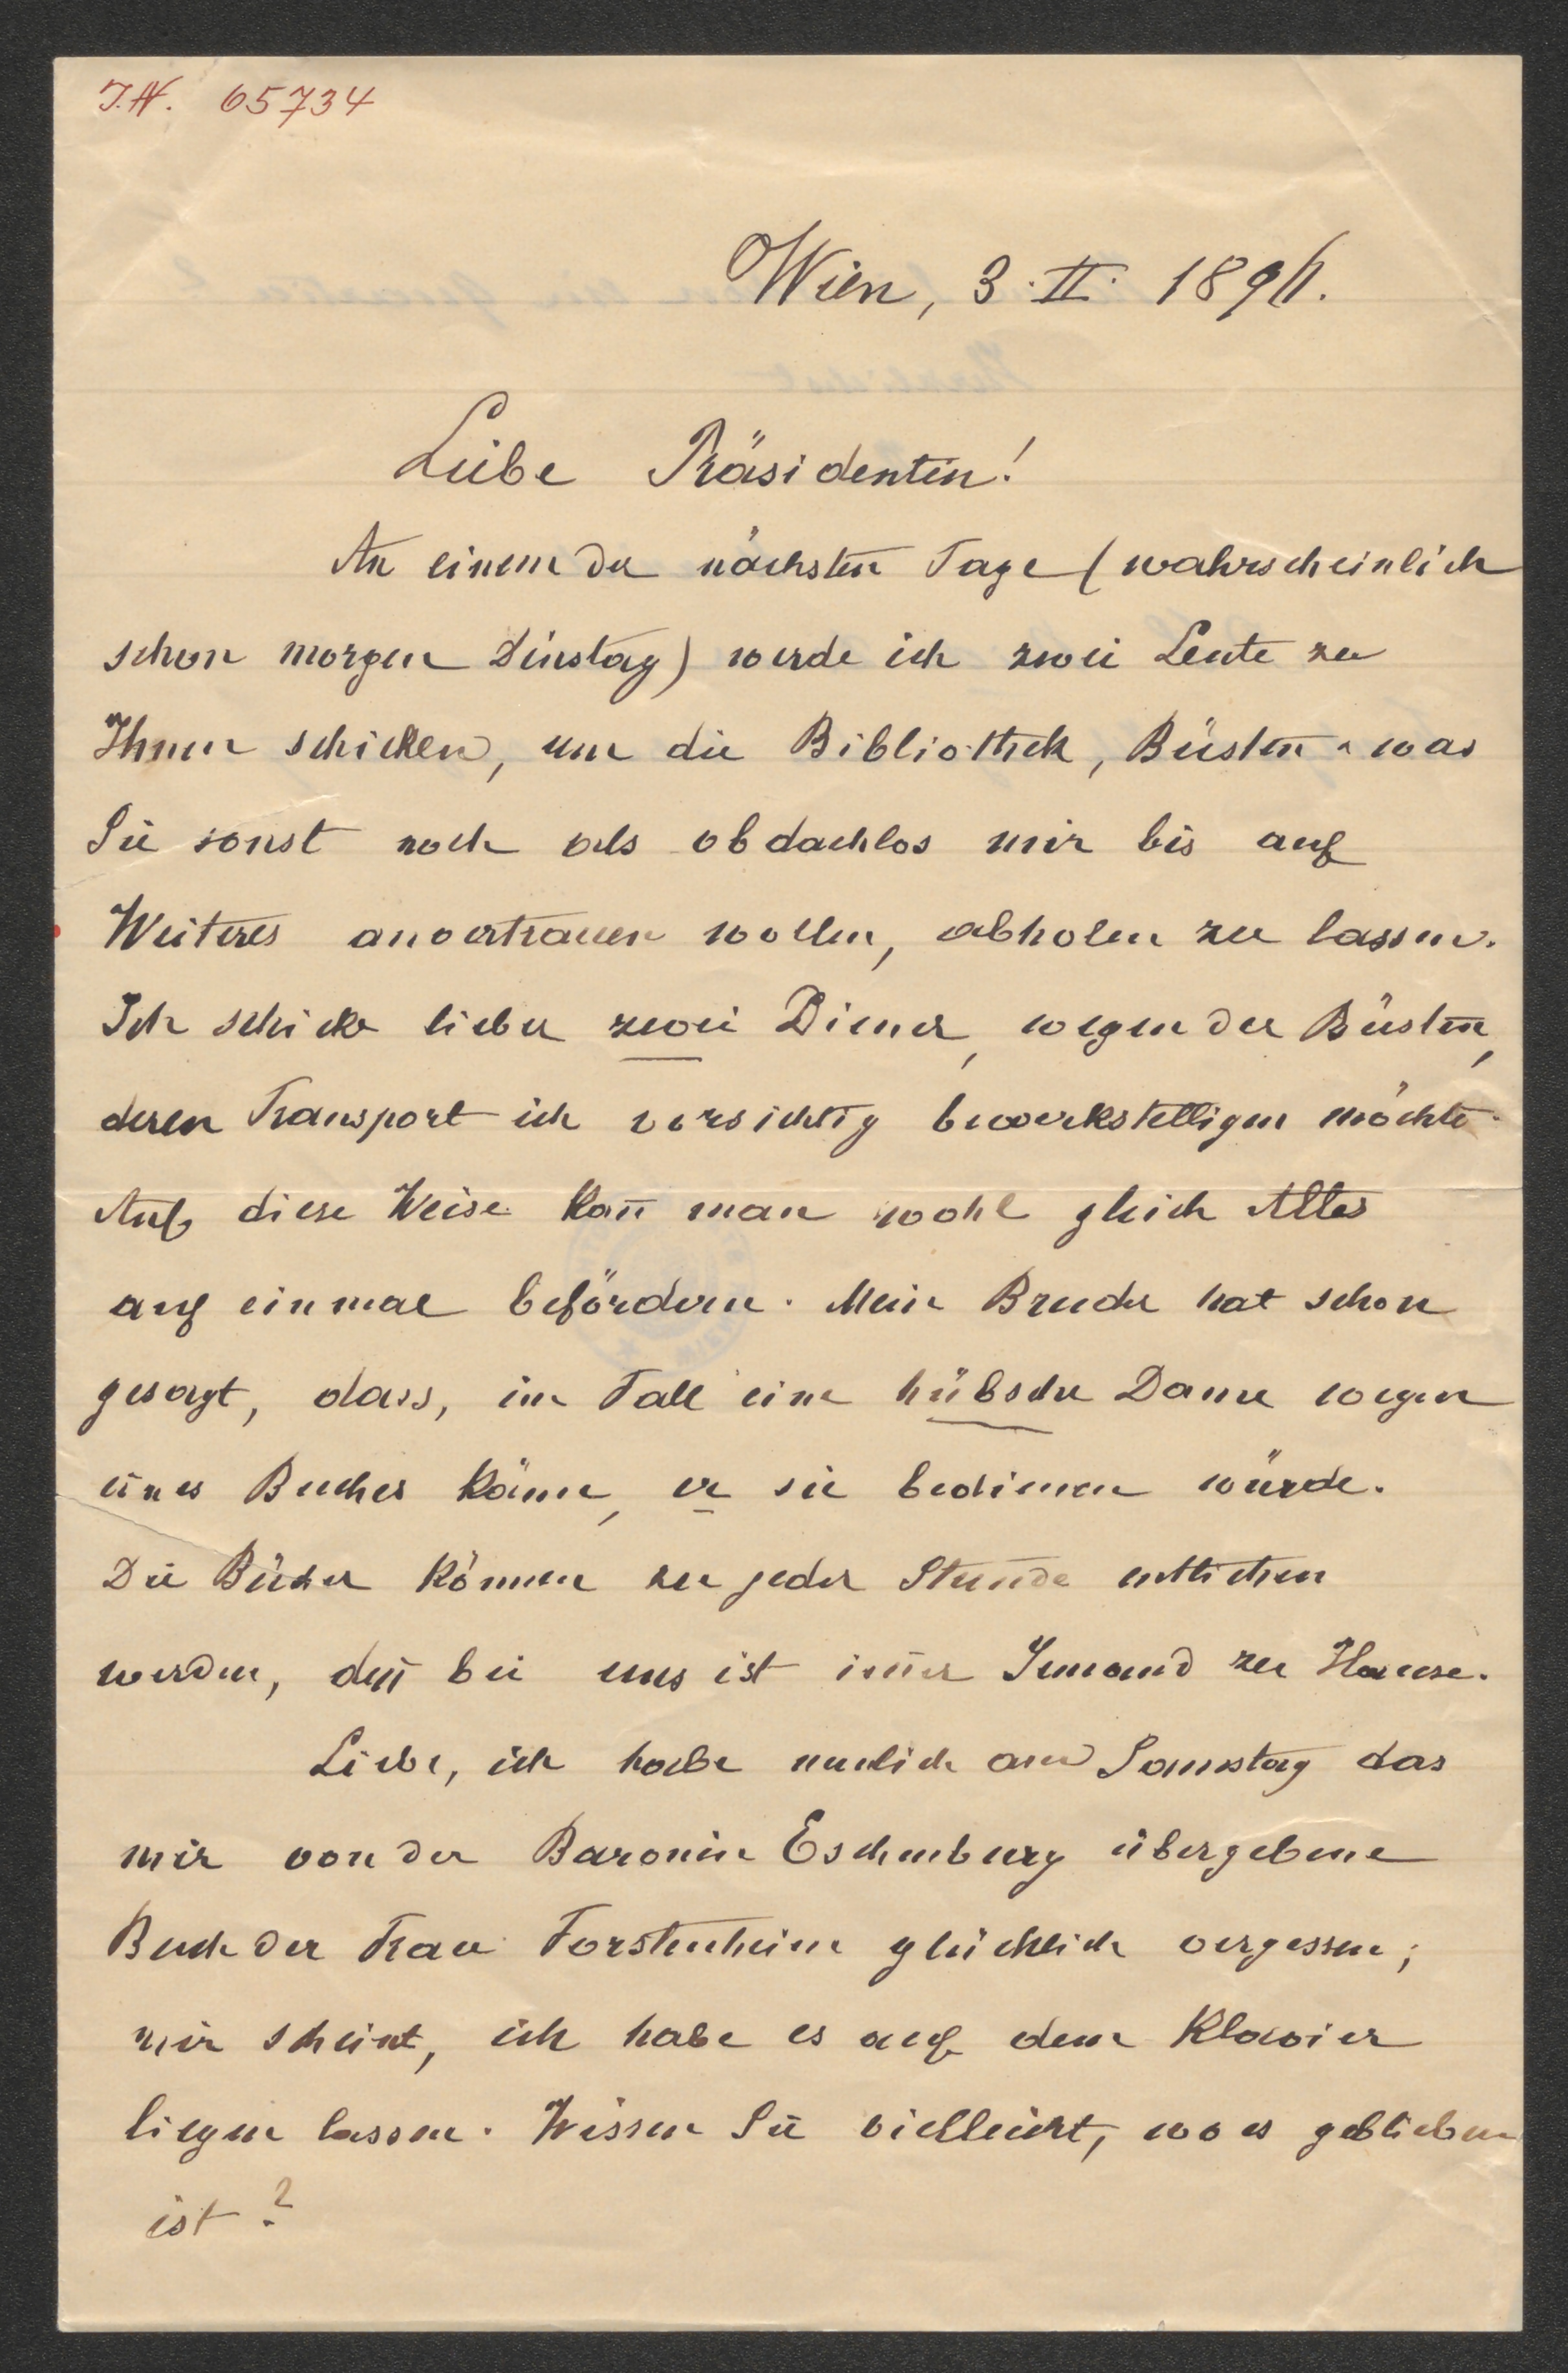 I.N. 65734
Wien, 3. II. 1896.
Liebe Präsidentin!
An einem der nächsten Tage (wahrscheinlich
schon morgen Dinstag) werde ich zwei Leute zu
Ihnen schicken, um die Bibliothek, Büsten u was
Sie sonst noch als obdachlos mir bis auf
Weiteres anvertrauen wollen, abholen zu lassen.
Ich schicke lieber zwei Diener, wegen der Büsten,
deren Transport ich vorsichtig bewerkstelligen möchte.
Auf diese Weise kan̄ man wohl gleich Alles
auf einmal befördern. Mein Bruder hat schon
gesagt, dass, im Fall eine hübsche Dame wegen
eines Buches käme, er sie bedienen würde.
Die Bücher können zu jeder Stunde entliehen
werden, den̄ bei uns ist im̄er Jemand zu Hause.
Liebe, ich habe neulich am Samstag das
mir von der Baronin Eschenburg übergebene
Buch der Frau Forstenheim glücklich vergessen;
mir scheint, ich habe es auf dem Klavier
liegen lassen. Wissen Sie vielleicht, wo es geblieben
ist?